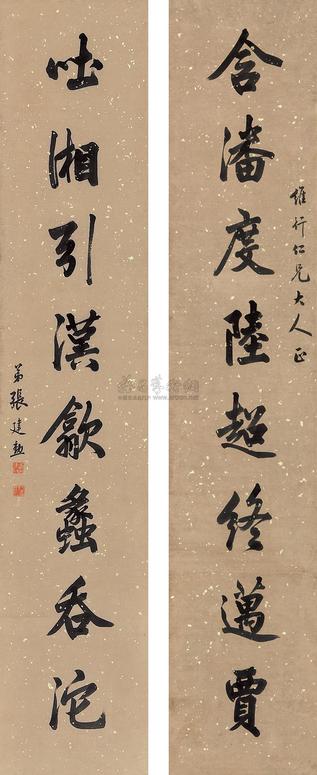 含潘度陸超終邁賈
維行仁兄大人正
吐湘引漢歙蠡吞沱
弟張建勳